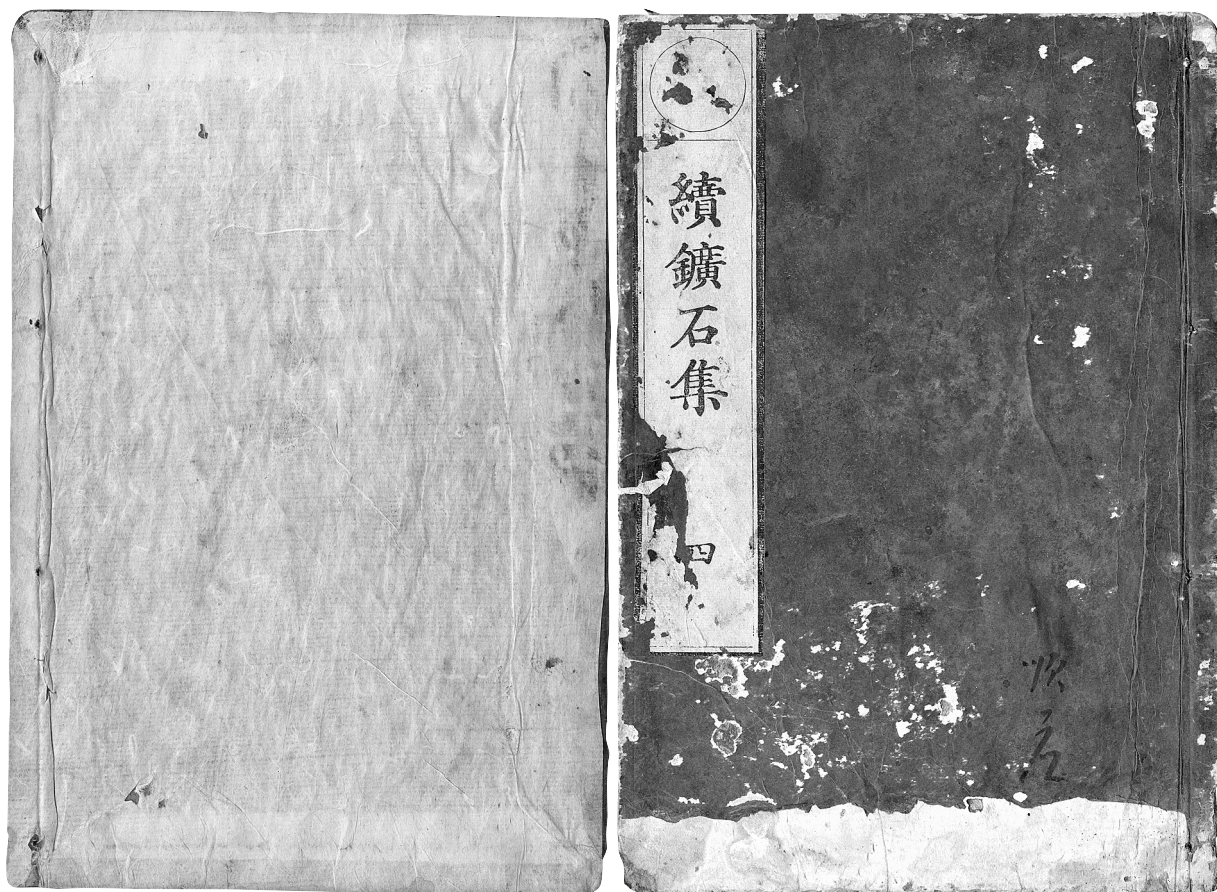 續鑛石集
四